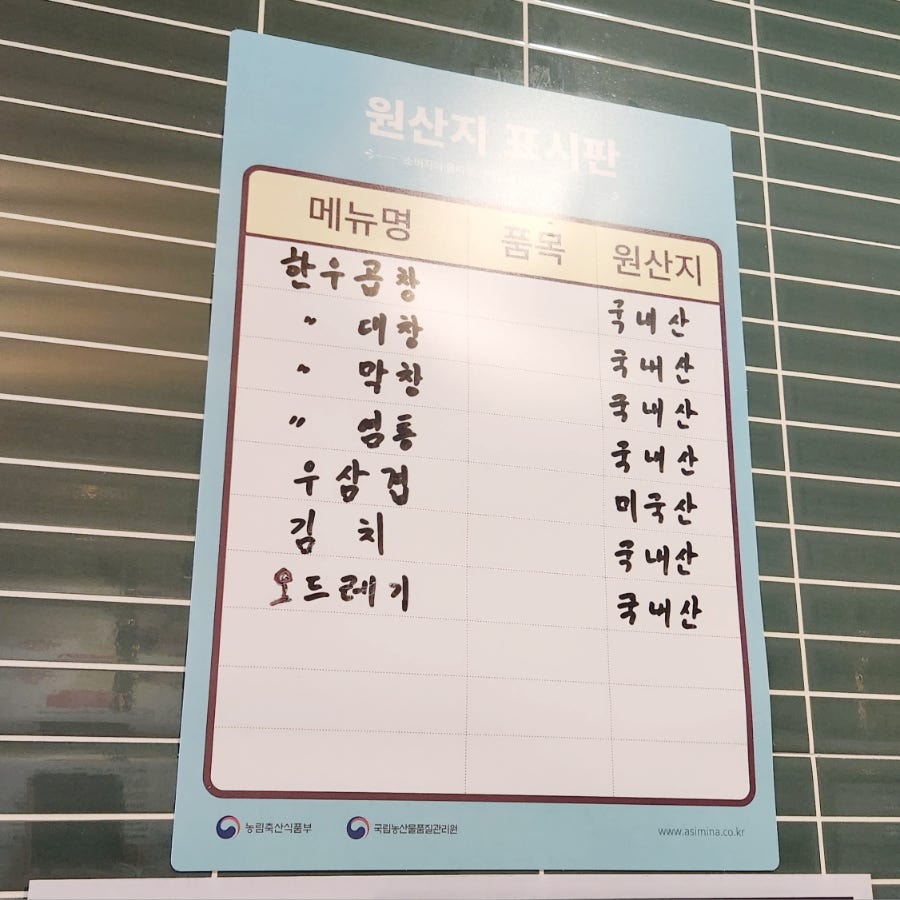 원산지 표시판
소비자의
메뉴명 품목 원산지
한우곱창 국내산
" 대창 국내산
" 막창 국내산
" 염통 국내산
우삼겹 미국산
김치 국내산
오드레기 국내산
농림축산식품부 국립농산물품질관리원 www.asimina.co.kr